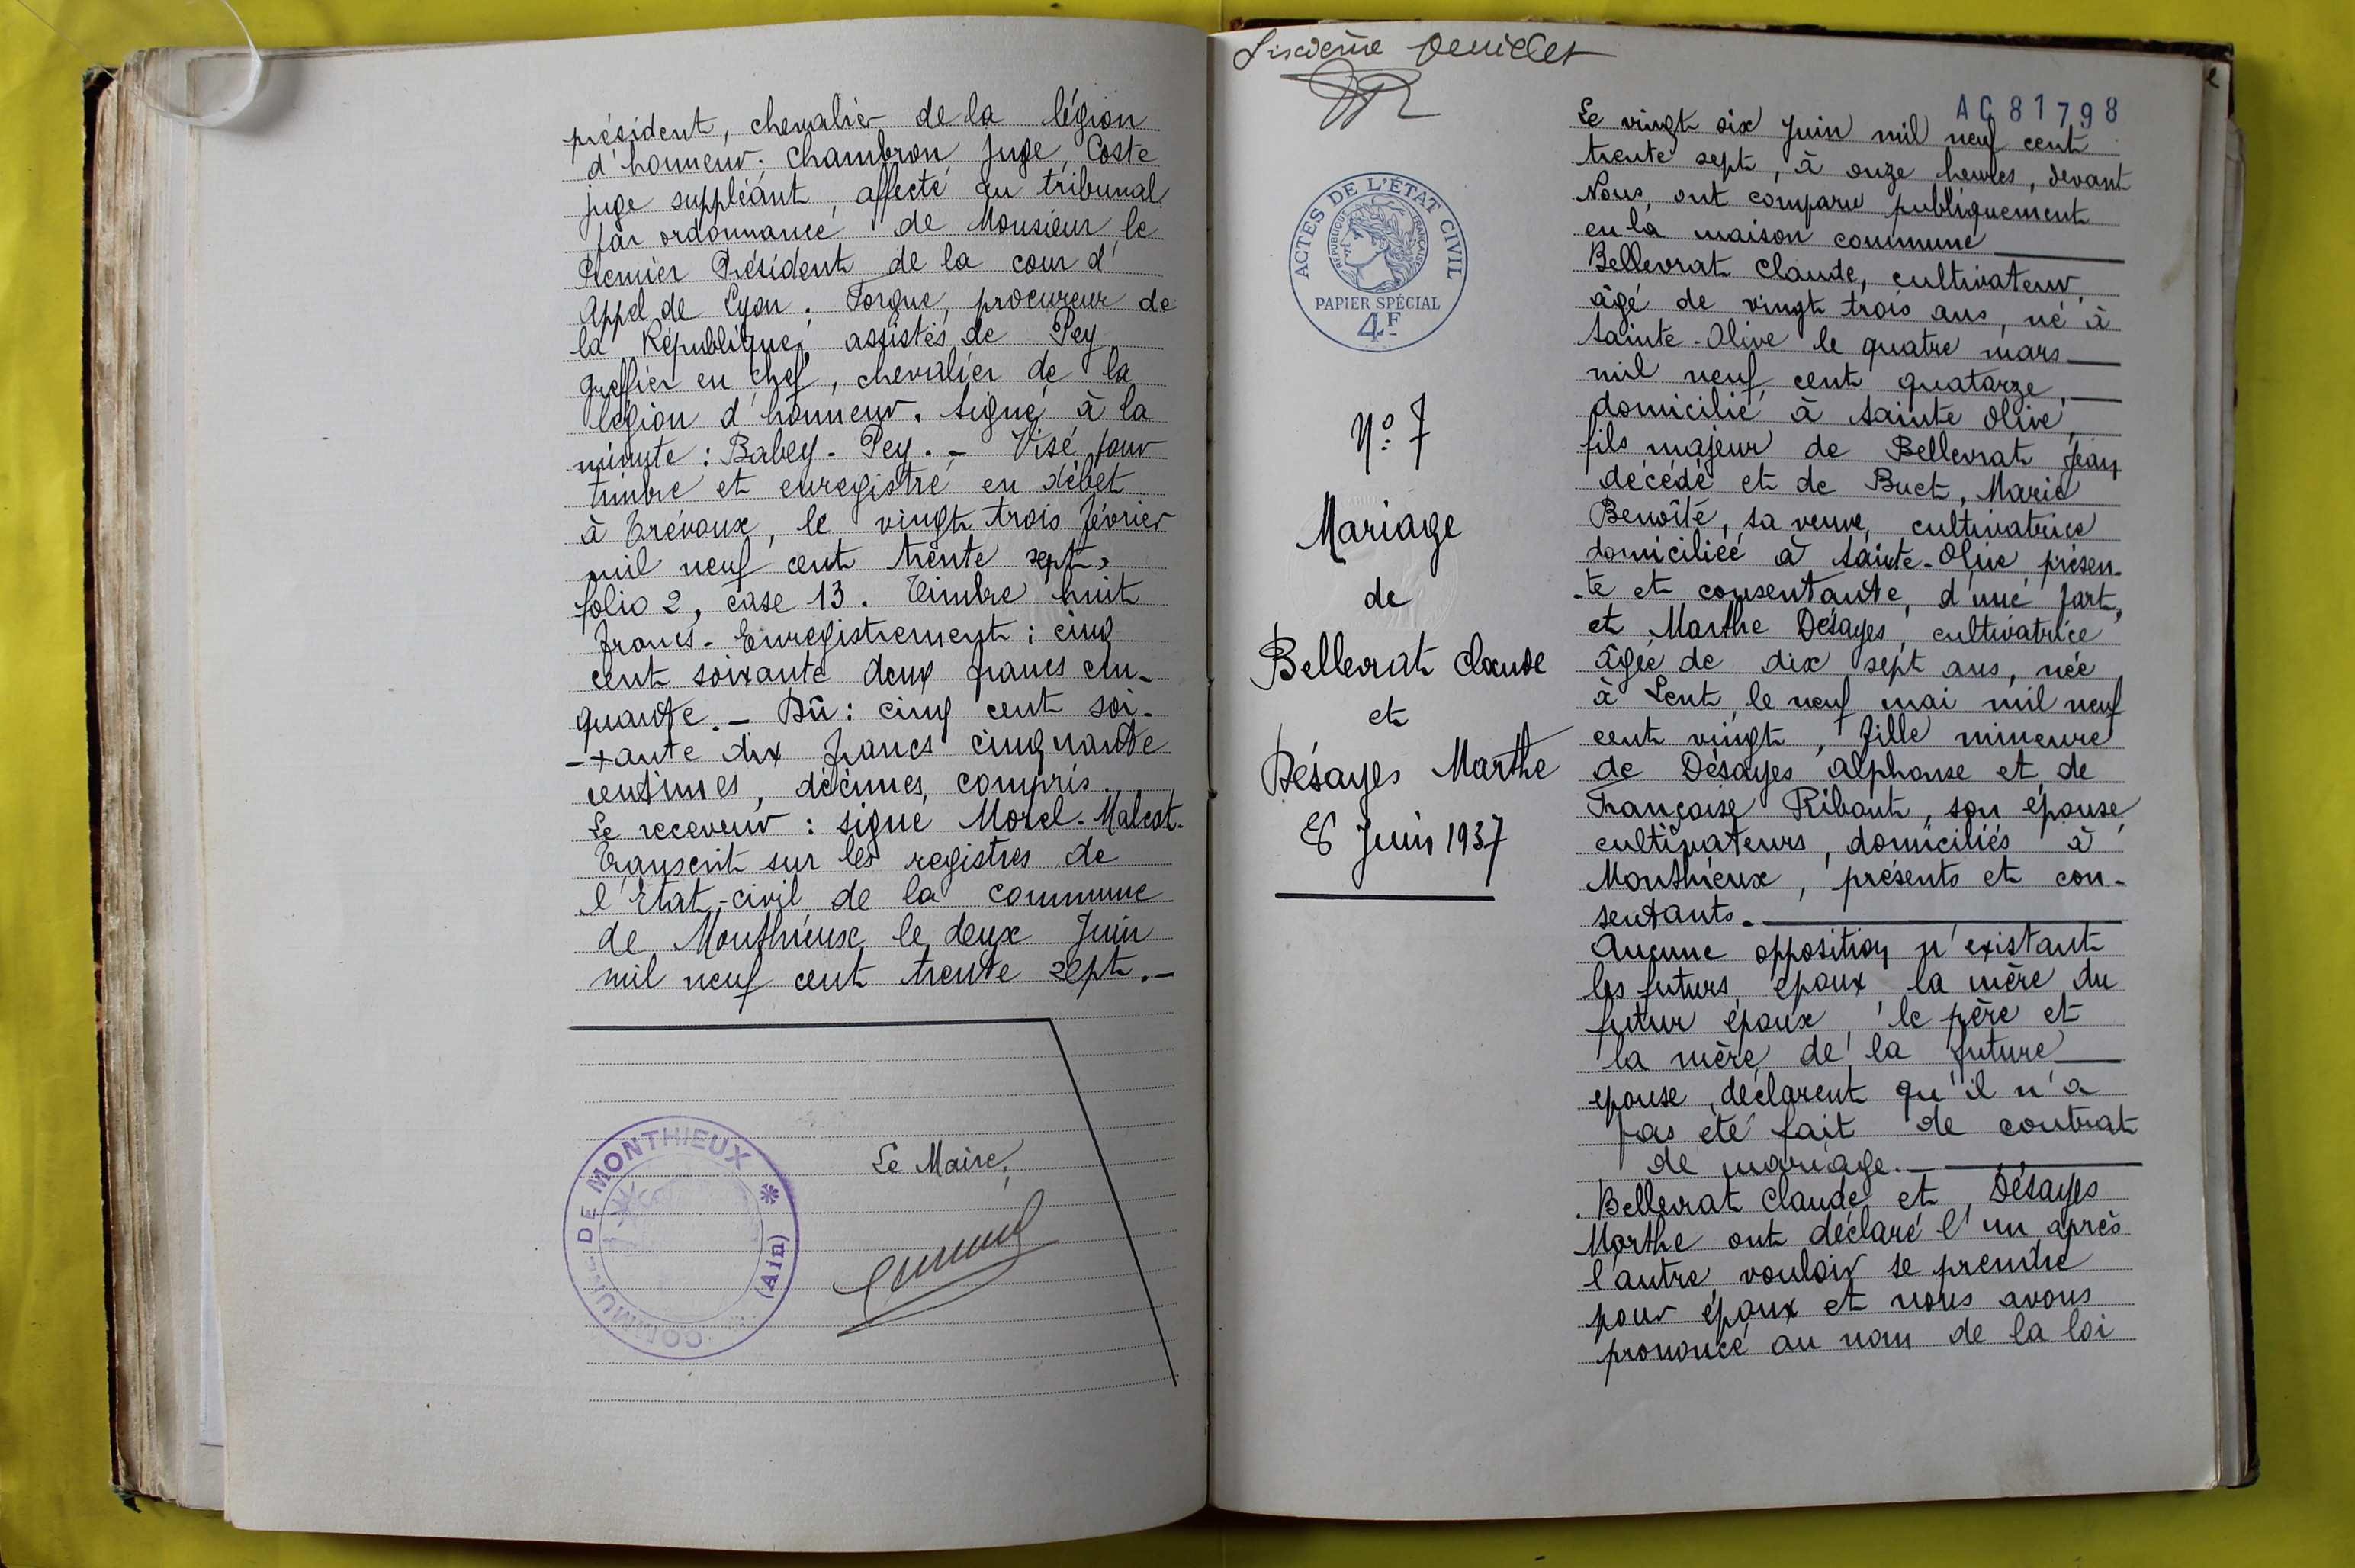 président, chevalier de la légion
d'honneur. Chambron juge, Coste
juge suppléant, affecté au tribunal
par ordonnance de Monsieur le
Premier Président de la cour d'
Appel de Lyon. Forgue, procureur de
la République, assistés de Pey
greffier en chef, chevalier de la
légion d'honneur. Signé à la
minute : Babey - Pey. - Visé pour
timbre et enregistré en débet
à Trévoux, le vingt trois février
mil neuf cent trente sept,
folio 2, case 13. Timbre huit
francs - Enregistrement : cinq
cent soixante deux francs cin-
quante. - Dû : cinq cent soi-
-xante dix francs cinquante
centimes, décimes compris.
Le receveur : signé Morel-Malcot.
Transcrit sur les registres de
l'Etat-civil de la commune
de Monthieux le deux Juin
mil neuf cent trente sept. -
Le Maire,
COMMUNE DE MONTHIEUX * (Ain)
Sixième feuillet
ACTES DE L'ÉTAT CIVIL
RÉPUBLIQUE FRANÇAISE
PAPIER SPÉCIAL
4F
N° 7
Mariage
de
Bellevrat Claude
et
Désayes Marthe
Juin 1937
AC 81798
Le vingt six Juin mil neuf cent
trente sept, à onze heures, devant
Nous, ont comparu publiquement
en la maison commune
Bellevrat Claude, cultivateur,
âgé de vingt trois ans, né à
Sainte-Olive le quatre mars
mil neuf cent quatorze,
domicilié à Sainte Olive,
fils majeur de Bellevrat Jean
décédé et de Buet, Marie
Benoîte, sa veuve, cultivatrice
domiciliée à Sainte-Olive présen-
-te et consentante, d'une part,
et Marthe Désayes, cultivatrice
âgée de dix sept ans, née
à Lent, le neuf mai mil neuf
cent vingt, fille mineure
de Désayes Alphonse et de
Françoise Ribaut, son épouse,
cultivateurs, domiciliés à
Monthieux, présents et con-
sentants.
Aucune opposition n'existant
les futurs époux la mère du
futur époux, le père et
la mère de la future
épouse, déclarent qu'il n'a
pas été fait de contrat
de mariage.
Bellevrat Claude et Désayes
Marthe ont déclaré l'un après
l'autre vouloir se prendre
pour époux et nous avons
prononcé au nom de la loi